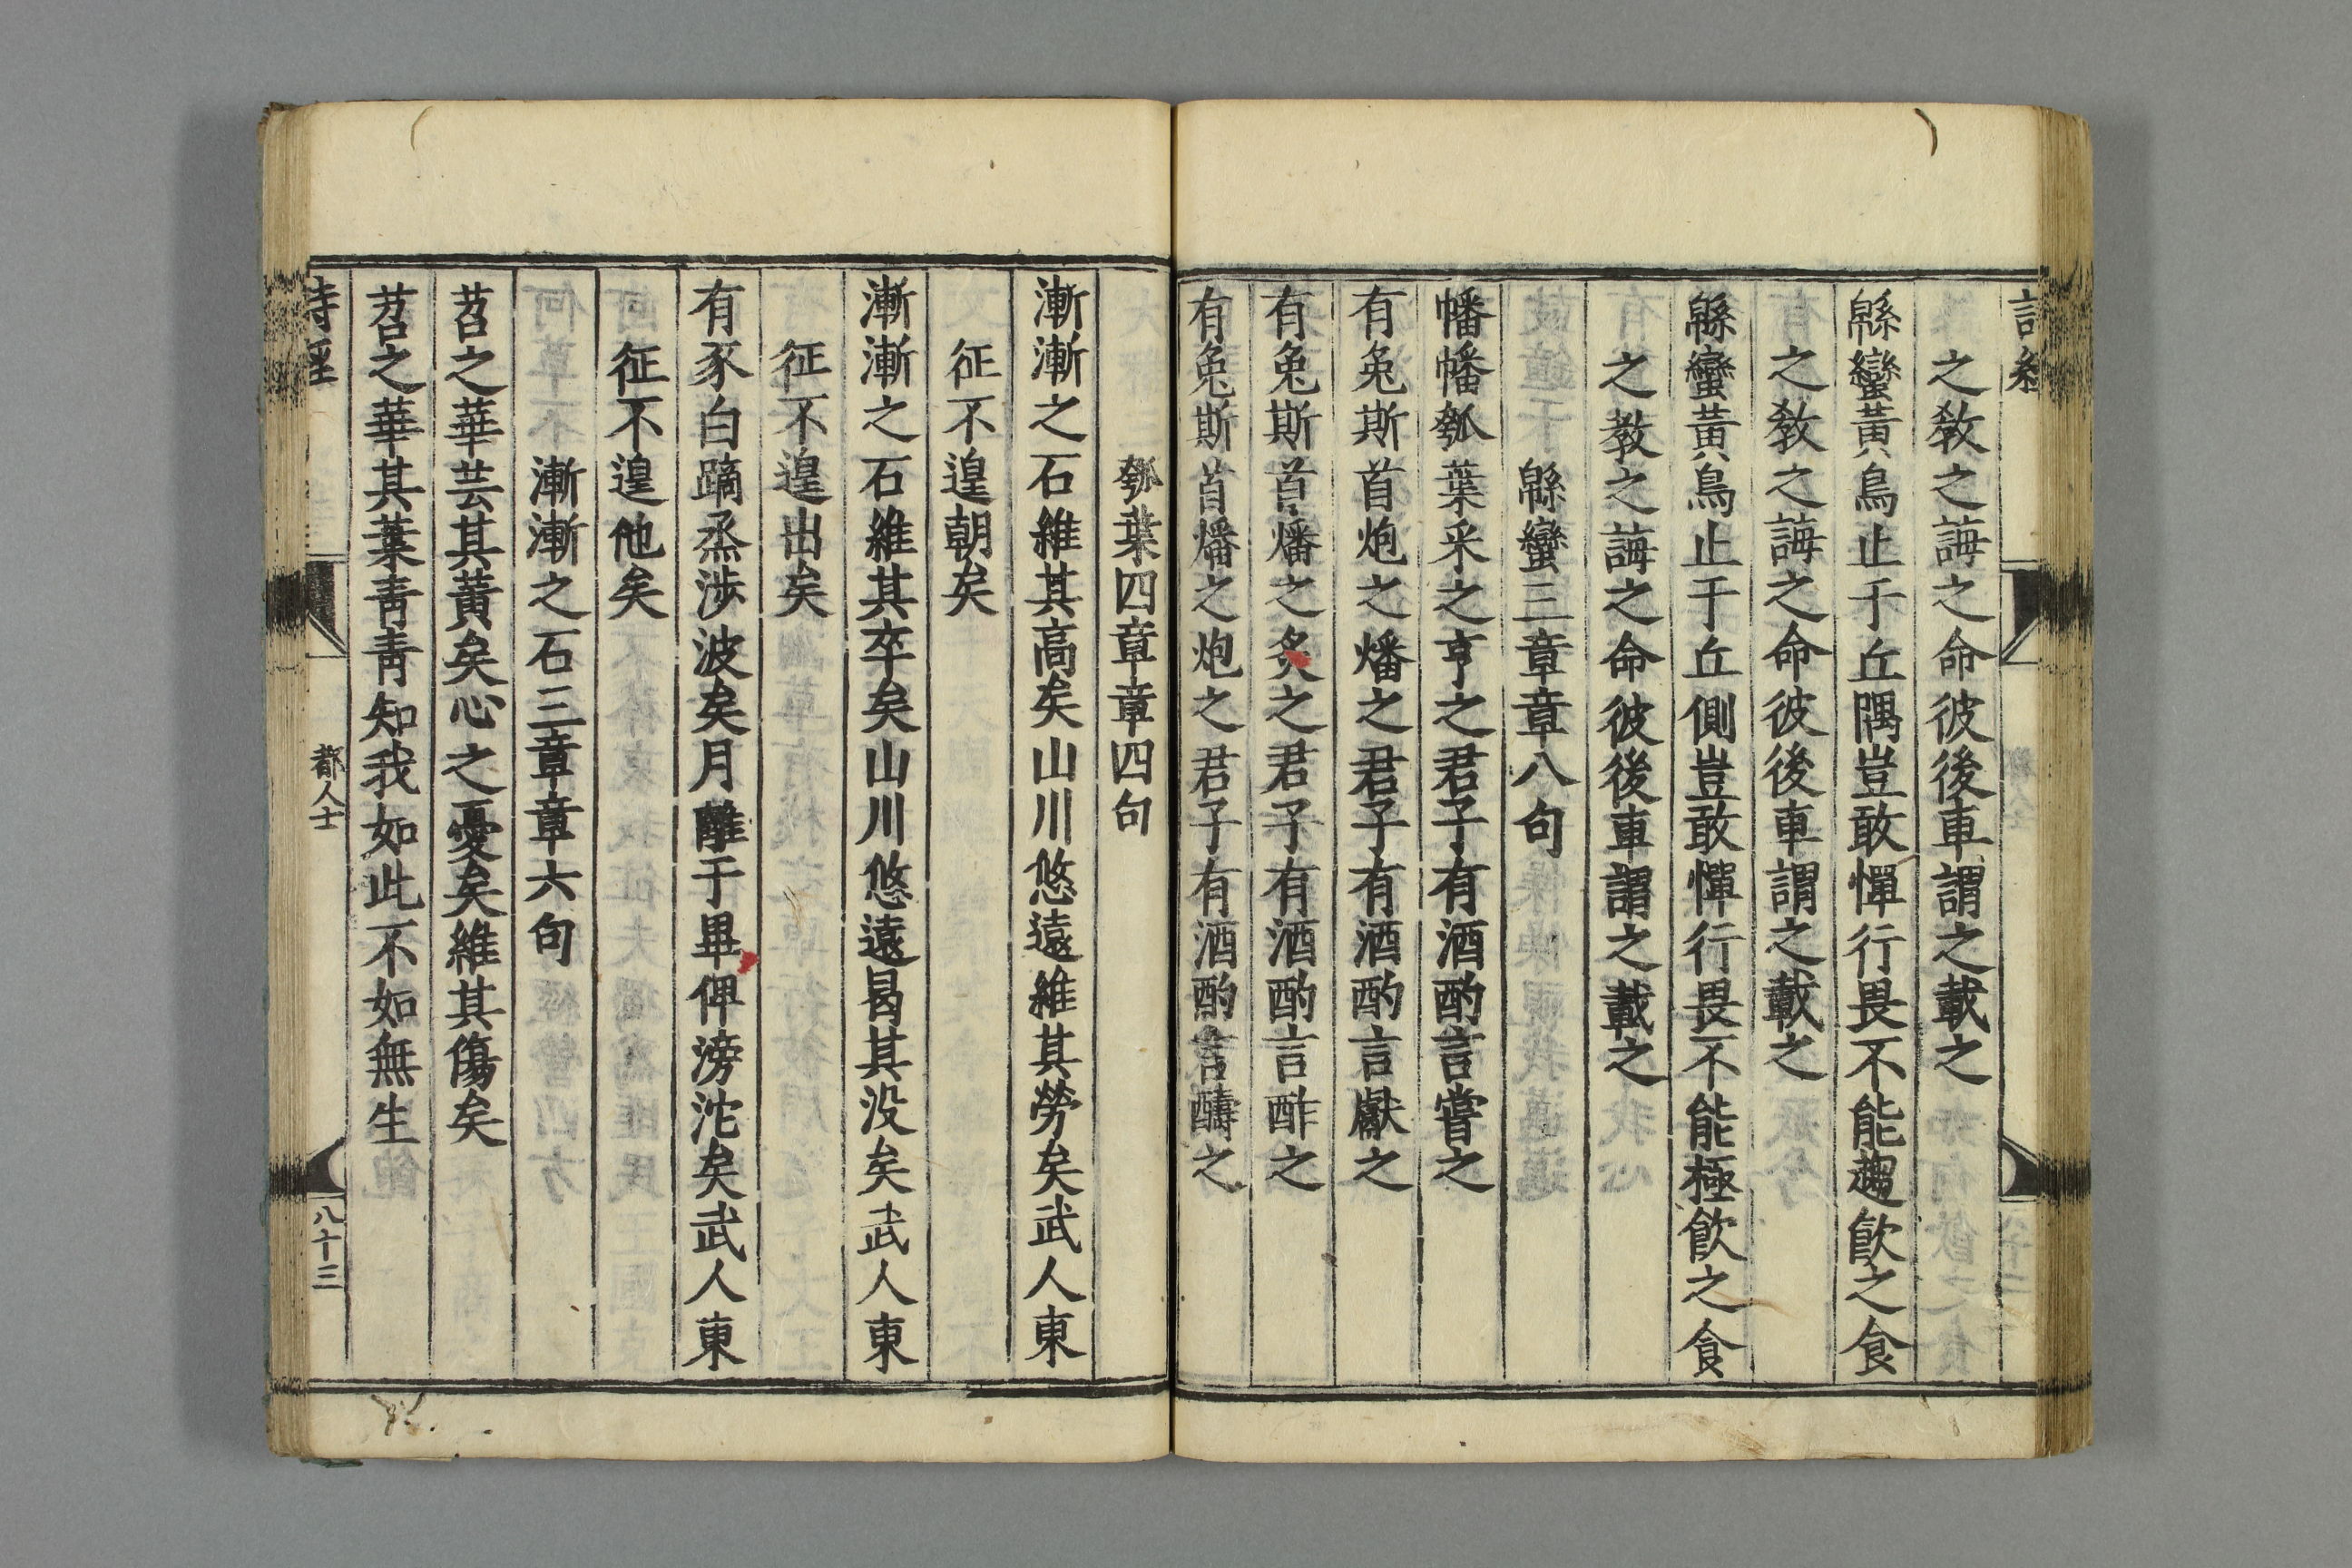 詩經
之敎之誨之命彼後車謂之載之
緜蠻黃鳥止于丘隅豈敢憚行畏不能趨飮之食
之敎之誨之命彼後車謂之載之
緜蠻黃鳥止于丘側豈敢憚行畏不能極飮之食
之敎之誨之命彼後車謂之載之
緜蠻三章章八句
幡幡瓠葉采之亨之君子有酒酌言嘗之
有兔斯首炮之燔之君子有酒酌言獻之
有兔斯首燔之炙之君子有酒酌言酢之
有兔斯首燔之炮之君子有酒酌言醻之
瓠葉四章章四句
漸漸之石維其高矣山川悠遠維其勞矣武人東
征不遑朝矣
漸漸之石維其卒矣山川悠遠曷其没矣武人東
征不遑出矣
有豕白蹢烝涉波矣月離于畢俾滂沱矣武人東
征不遑他矣
漸漸之石三章章六句
苕之華芸其黃矣心之憂矣維其傷矣
苕之華其葉靑靑知我如此不如無生
詩經
都人士
八十三